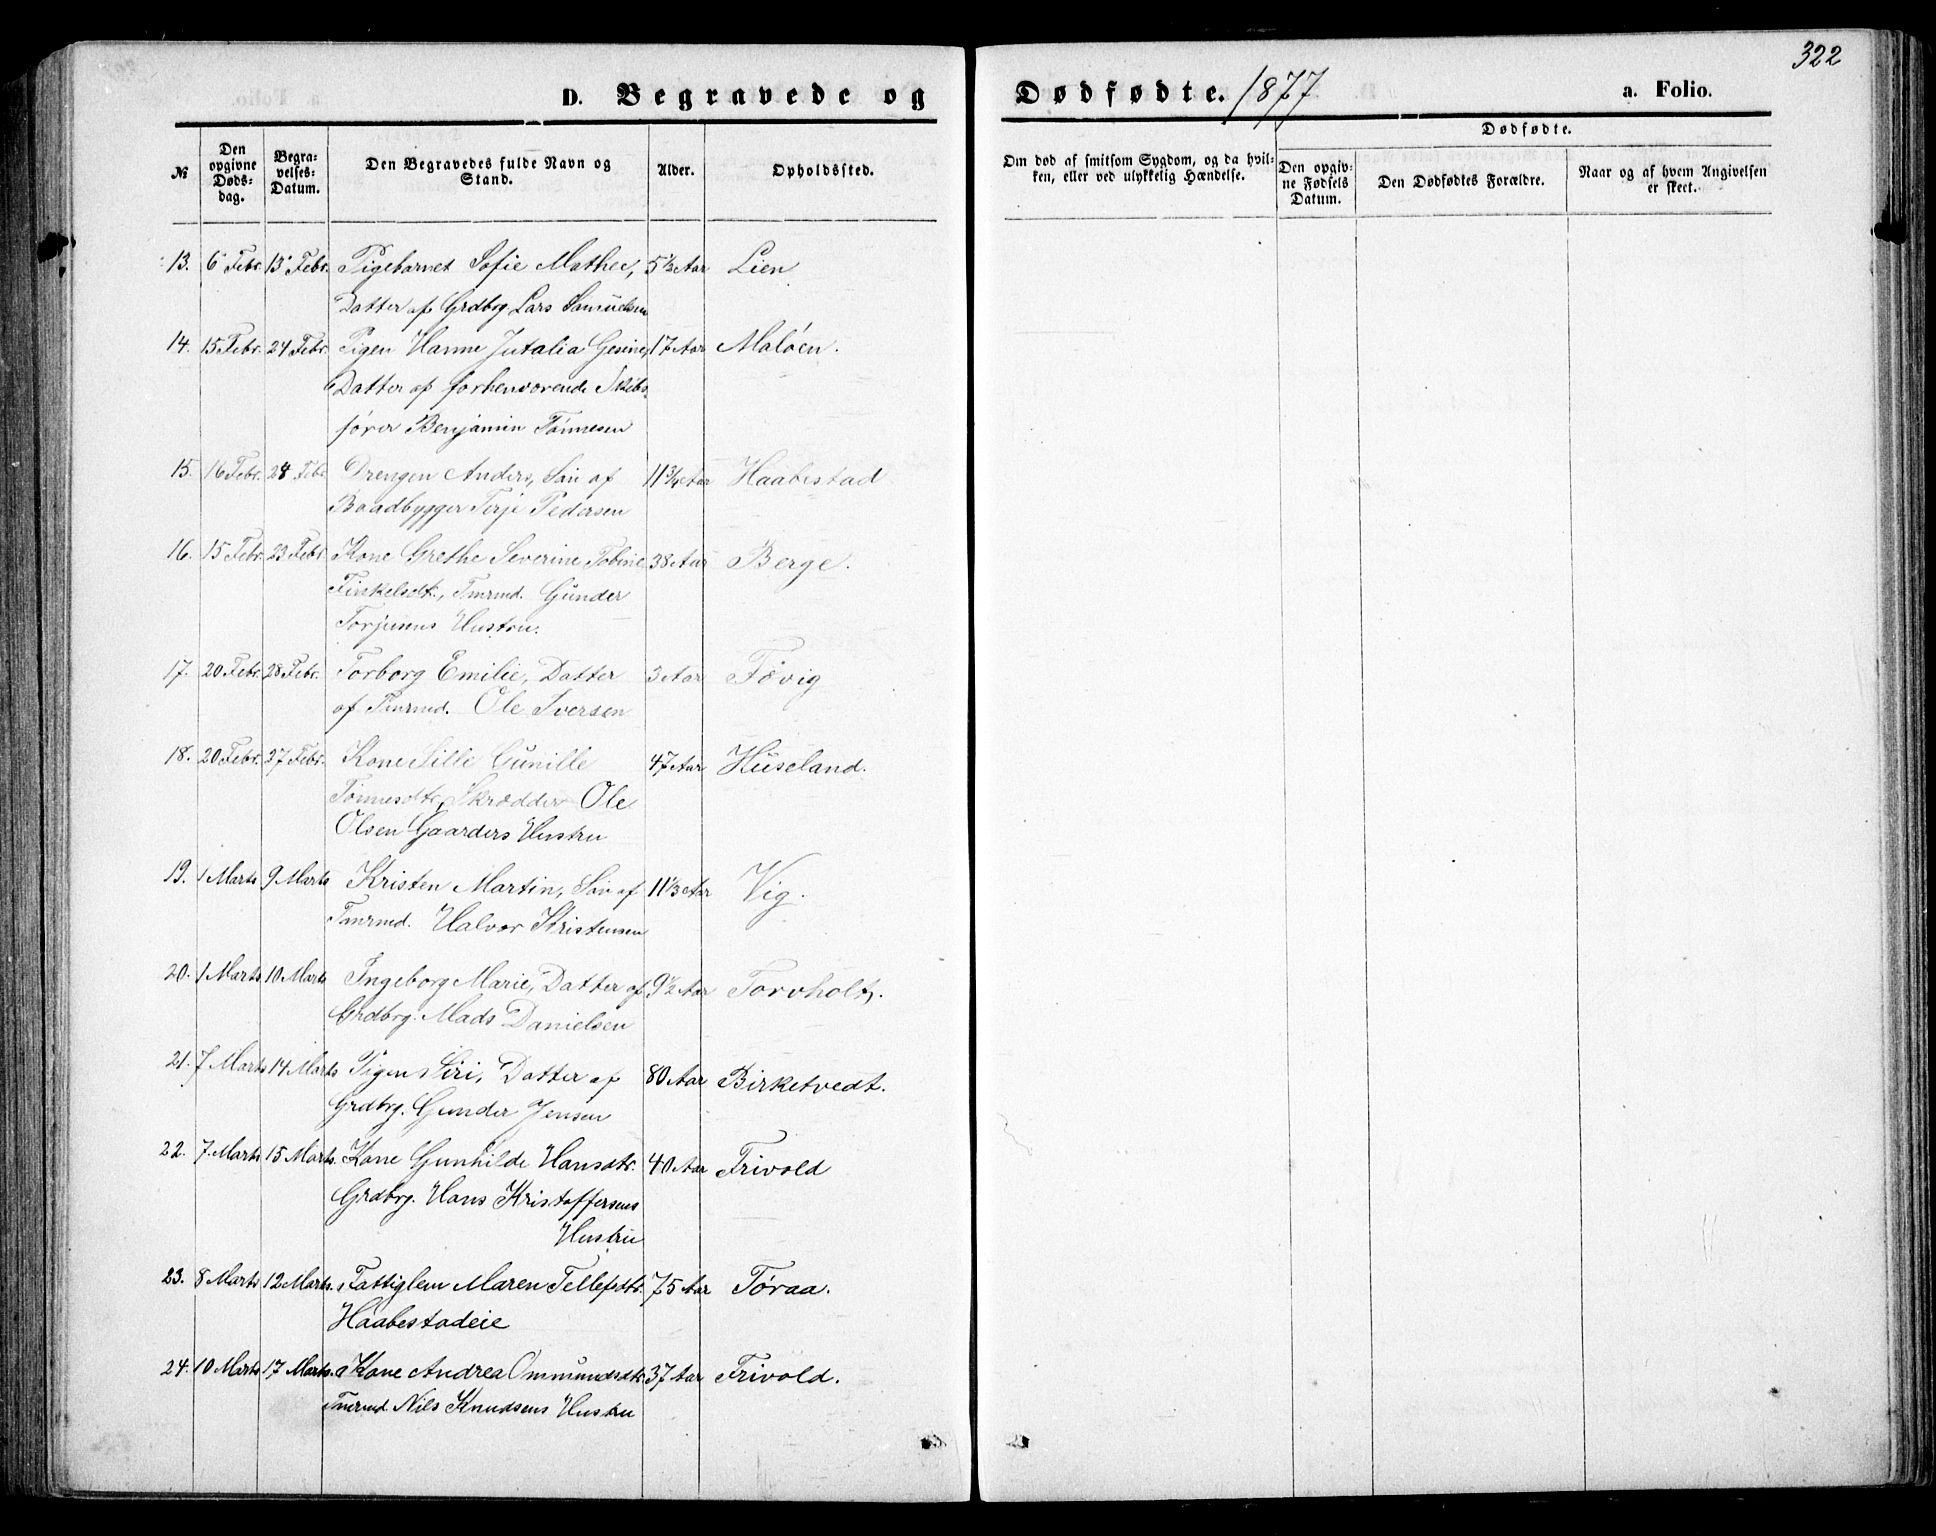 322
D. Begravede og Dødfødte. 1877 a. Folio.
Dødfødte.
№ Den opgivne Døds-dag. Begra-velses-Datum. Den Begravedes fulde Navn og Stand. Alder. Opholdssted. Om død af smitsom Sygdom, og da hvil-ken, eller ved ulykkelig Hændelse. Den opgiv-ne Fødsels Datum. Den Dødfødtes Forældre. Naar og af hvem Angivelsen er skeet.
13. 6 Febr. 13 Febr. Pigebarnet Sofie Mathee, 5½ Aar Lien
Datter af Grdbrg Lars Samuelsen
14. 15 Febr. 24 Febr. Pigen Hanne Jutalia Gesine, 17 Aar Maløen.
Datter af forhenværende Skibs-
fører Benjamin Tønnesen
15. 16 Febr. 28 Febr Drengen Anders, Søn af 11¾ Aar Haabestad
Baadbygger Terje Pedersen
16. 15 Febr. 23 Febr. Kone Grethe Severine Tobine 38 Aar Berge.
Finkelsdtr., Tmrmd. Gunder
Torjusens Hustru.
17. 20 Febr. 28 Febr. Torborg Emilie, Datter 3 Aar Fævig
af Tmrmd. Ole Iversen
18. 20 Febr. 27 Febr. Kone Sille Gunille 47 Aar Huseland.
Tønnesdtr, Skrædder Ole
Olsen Gaarders Hustru
19. 1 Marts 9 Marts Kristen Martin, Søn af 11⅓ Aar Vig.
Tmrmd. Halvor Kristensen
20. 1 Marts 10 Marts Ingeborg Marie, Datter af 9½ Aar Torvholt.
Grdbrg. Mads Danielsen
21. 7 Marts 14 Marts Pigen Siri, Datter af 80 Aar Birketvedt.
Grdbrg. Gunder Jensen
22. 7. Marts 15 Marts. Kone Gunhilde Hansdtr. 40 Aar Frivold
Grdbrg. Hans Kristoffersens
Hustru
23. 8 Marts 12 Marts. Fattiglem Maren Tellefsdtr. 75 Aar Tøraa.
Haabestadeie
24. 10 Marts 17 Marts. Kone Andrea Ommundsdtr. 37 Aar Frivold.
Tmrmd. Nils Knudsens Hustru